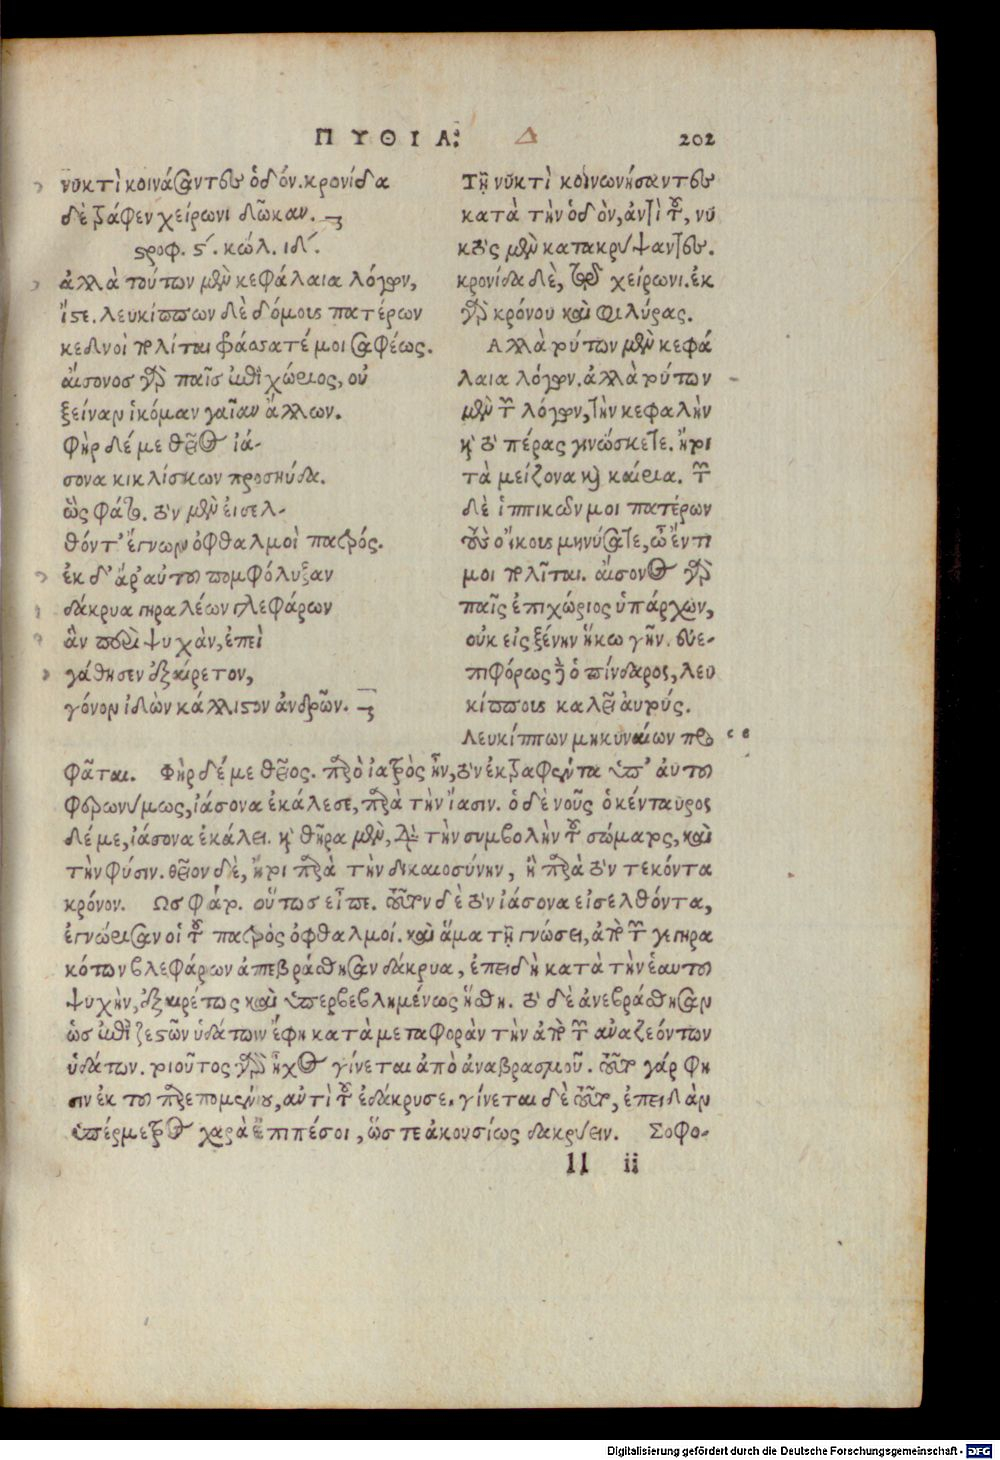 ΠΥΘΙΑ: Δ 202
νυκτὶ κοινάσαντες ὁδόν. κρονίδᾳ
δὲ τράφεν χείρωνι δῶκαν.
στροφ. ϛ´. κώλ. ιδ´.
ἀλλὰ τούτων μὲν κεφάλαια λόγων,
ἴστε. λευκίππων δὲ δόμους πατέρων
κεδνοὶ πολῖται φάσσατέ μοι σαφέως.
αἴσονος γὰρ παῖς ἐπιχώριος, οὐ
ξείναν ἱκόμαν γαῖαν ἄλλων.
Φὴρ δέ με θεῖος ἰά-
σονα κικλίσκων προσηύδα.
ὣς φάτο. τὸν μὲν εἰσελ-
θόντ' ἔγνων ὀφθαλμοὶ πατρός.
ἐκ δ' ἄρ' αὐτοῦ πομφόλυξαν
δάκρυα γηραλέων γλεφάρων
ἃν περὶ ψυχὰν, ἐπεὶ
γάθησεν ἐξαίρετον,
γόνον ἰδὼν κάλλιστον ἀνδρῶν.
τῇ νυκτὶ κοινωνήσαντες
κατὰ τὴν ὁδὸν, ἀντὶ τοῦ, νυ
κτὸς μὲν κατακρύψαντες.
κρονίδα δὲ, τῷ χείρωνι. ἐκ
γὰρ κρόνου καὶ φιλύρας.
Αλλὰ τούτων μὲν κεφά
λαια λόγων. ἀλλὰ τούτων
μὲν τῶν λόγων, τὴν κεφαλὴν
καὶ τὸ πέρας γινώσκετε. ἤτοι
τὰ μείζονα καὶ καίρια. τῶν
δὲ ἱππικῶν μοι πατέρων
τοὺς οἴκους μηνύσατε, ὦ ἔντι
μοι πολῖται. αἴσονος γὰρ
παῖς ἐπιχώριος ὑπάρχων,
οὐκ εἰς ξένην ἥκω γῆν. εὐε-
πιφόρως δὲ ὁ πίνδαρος, λευ
κίππους καλεῖ αὐτούς.
Λευκίππων μηκυναίων προ
φᾶται. Φὴρ δέ με θεῖος. παρὸ ἰατρὸς ἦν, τὸν ἐκτραφέντα ὑπ' αὐτοῦ
φερωνύμως, ἰάσονα ἐκάλεσε, παρὰ τὴν ἴασιν. ὁ δὲ νοῦς ὁ κένταυρος
δέ με, ἰάσονα ἐκάλει. καὶ θῆρα μὲν, διὰ τὴν συμβολὴν τοῦ σώματος, καὶ
τὴν φύσιν. θεῖον δὲ, ἤτοι παρὰ τὴν δικαιοσύνην, ἢ παρὰ τὸν τεκόντα
κρόνον. Ως φάτο. οὕτως εἶπε. τοῦτον δὲ τὸν ἰάσονα εἰσελθόντα,
ἐγνώρισαν οἱ τοῦ πατρὸς ὀφθαλμοί. καὶ ἅμα τῇ γνώσει, ἀπὸ τῶν γεγηρα
κότων βλεφάρων ἀπεβράσθησαν δάκρυα, ἐπειδὴ κατὰ τὴν ἑαυτοῦ
ψυχὴν, ἐξαιρέτως καὶ ὑπερβεβλημένως ἥσθη. τὸ δὲ ἀνεβράσθησαν
ὡς ἐπὶ ζεστῶν ὑδάτων ἔφη κατὰ μεταφορὰν τὴν ἀπὸ τῶν ἀναζεόντων
ὑδάτων. τοιοῦτος γὰρ ἦχος γίνεται ἀπὸ ἀναβρασμοῦ. τοῦτο γάρ φη
σιν ἐκ τοῦ παρεπομένου, ἀντὶ τοῦ ἐδάκρυσε. γίνεται δὲ τοῦτο, ἐπειδὰν
ὑπέρμετρος χαρὰ ἐπιπέσοι, ὥστε ἀκουσίως δακρύειν. Σοφο-
ll ii
Digitalisierung gefördert durch die Deutsche Forschungsgemeinschaft - DFG